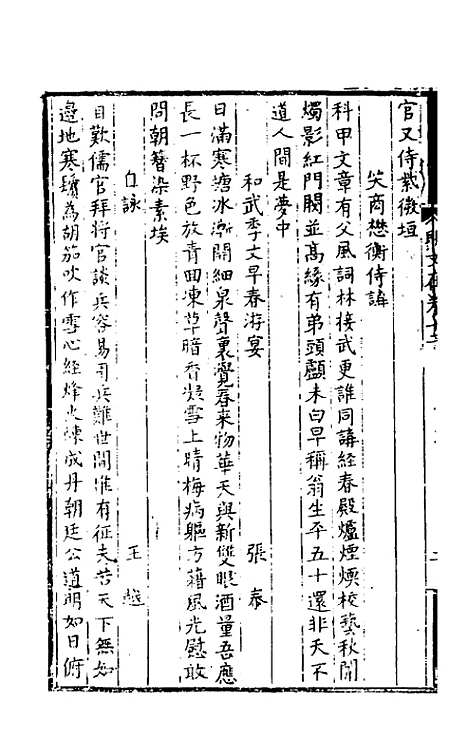 官又侍紫微垣
哭商懋衡侍講
科甲文章有父風詞林接武更誰同講經春殿爐煙煖校藝秋闈
燭影紅門閥並高緣有弟頭顱未白早稱翁生平五十還非夭不
道人間是夢中
和武季文早春游宴
張泰
日滿寒塘冰漸開細泉聲裏覺春來物華天與新雙眼酒量吾應
長一杯野色放青田凍草暗香凝雪上晴梅病軀方藉風光慰敢
問朝簪染素埃
自詠
王越
自歎儒官拜將官談兵容易用兵難世間惟有征夫苦天下無如
邊地寒鬢為胡笳吹作雪心經烽火煉成丹朝廷公道明如日俯